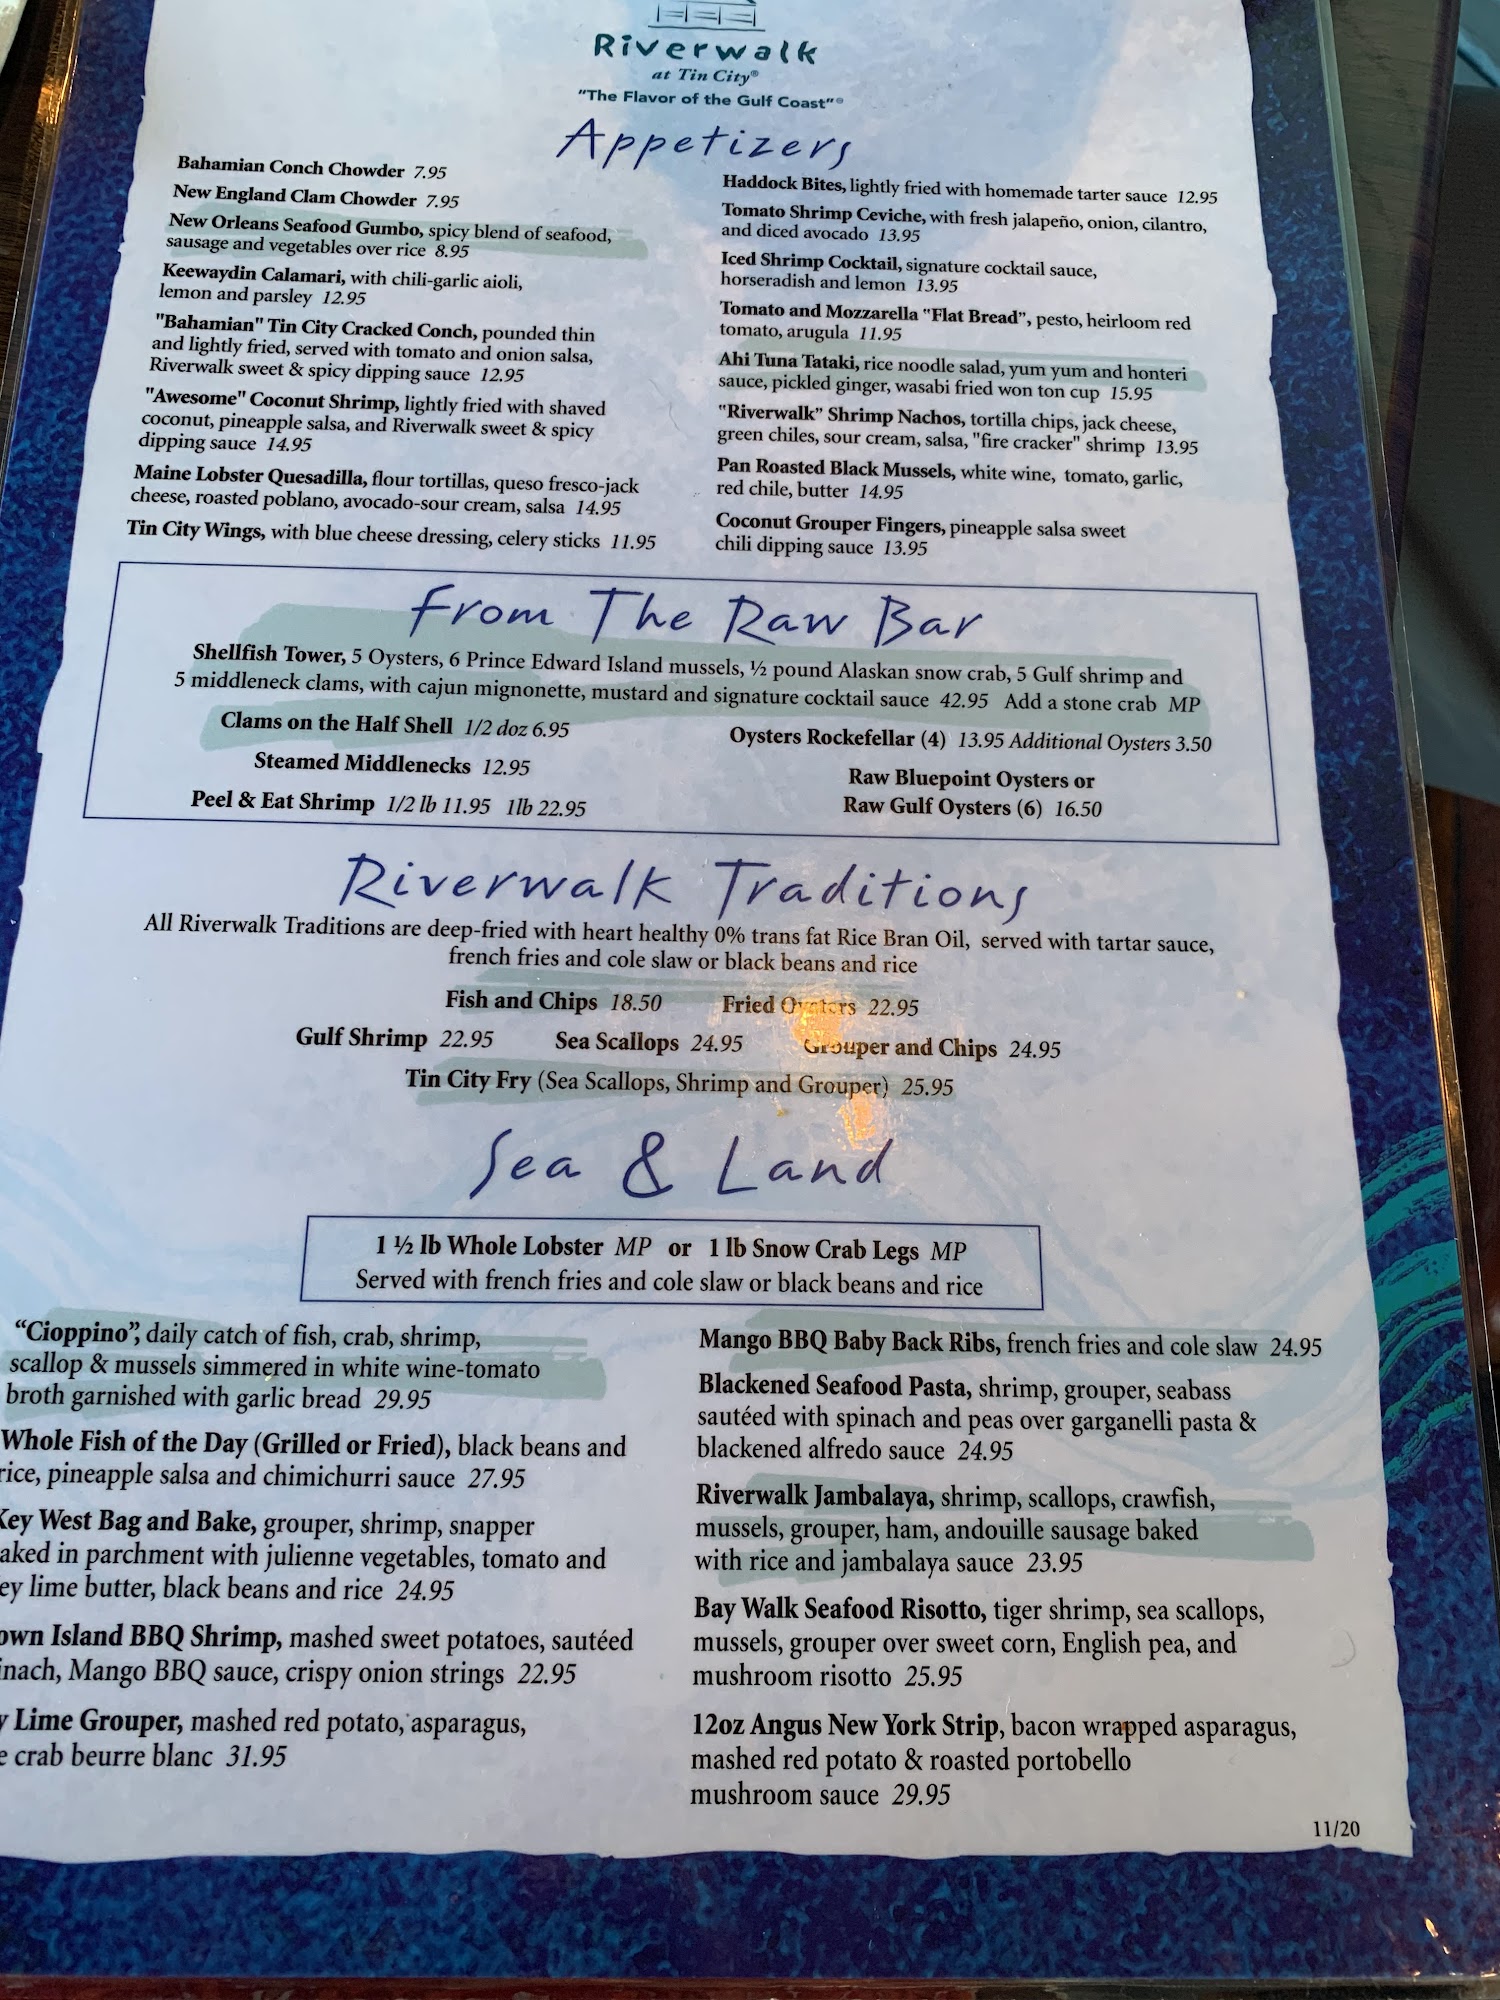 Riverwalk
at Tin City®
"The Flavor of the Gulf Coast"®
Appetizers
Bahamian Conch Chowder 7.95
New England Clam Chowder 7.95
New Orleans Seafood Gumbo, spicy blend of seafood,
sausage and vegetables over rice 8.95
Keewaydin Calamari, with chili-garlic aioli,
lemon and parsley 12.95
"Bahamian" Tin City Cracked Conch, pounded thin
and lightly fried, served with tomato and onion salsa,
Riverwalk sweet & spicy dipping sauce 12.95
"Awesome" Coconut Shrimp, lightly fried with shaved
coconut, pineapple salsa, and Riverwalk sweet & spicy
dipping sauce 14.95
Maine Lobster Quesadilla, flour tortillas, queso fresco-jack
cheese, roasted poblano, avocado-sour cream, salsa 14.95
Tin City Wings, with blue cheese dressing, celery sticks 11.95
Haddock Bites, lightly fried with homemade tarter sauce 12.95
Tomato Shrimp Ceviche, with fresh jalapeño, onion, cilantro,
and diced avocado 13.95
Iced Shrimp Cocktail, signature cocktail sauce,
horseradish and lemon 13.95
Tomato and Mozzarella "Flat Bread", pesto, heirloom red
tomato, arugula 11.95
Ahi Tuna Tataki, rice noodle salad, yum yum and honteri
sauce, pickled ginger, wasabi fried won ton cup 15.95
"Riverwalk" Shrimp Nachos, tortilla chips, jack cheese,
green chiles, sour cream, salsa, "fire cracker" shrimp 13.95
Pan Roasted Black Mussels, white wine, tomato, garlic,
red chile, butter 14.95
Coconut Grouper Fingers, pineapple salsa sweet
chili dipping sauce 13.95
From The Raw Bar
Shellfish Tower, 5 Oysters, 6 Prince Edward Island mussels, ½ pound Alaskan snow crab, 5 Gulf shrimp and
5 middleneck clams, with cajun mignonette, mustard and signature cocktail sauce 42.95 Add a stone crab MP
Clams on the Half Shell 1/2 doz 6.95
Steamed Middlenecks 12.95
Peel & Eat Shrimp 1/2 lb 11.95 1lb 22.95
Oysters Rockefellar (4) 13.95 Additional Oysters 3.50
Raw Bluepoint Oysters or
Raw Gulf Oysters (6) 16.50
Riverwalk Traditions
All Riverwalk Traditions are deep-fried with heart healthy 0% trans fat Rice Bran Oil, served with tartar sauce,
french fries and cole slaw or black beans and rice
Fish and Chips 18.50 Fried Oysters 22.95
Gulf Shrimp 22.95 Sea Scallops 24.95 Grouper and Chips 24.95
Tin City Fry (Sea Scallops, Shrimp and Grouper) 25.95
Sea & Land
1 ½ lb Whole Lobster MP or 1 lb Snow Crab Legs MP
Served with french fries and cole slaw or black beans and rice
"Cioppino", daily catch of fish, crab, shrimp,
scallop & mussels simmered in white wine-tomato
broth garnished with garlic bread 29.95
Whole Fish of the Day (Grilled or Fried), black beans and
rice, pineapple salsa and chimichurri sauce 27.95
Key West Bag and Bake, grouper, shrimp, snapper
aked in parchment with julienne vegetables, tomato and
ey lime butter, black beans and rice 24.95
own Island BBQ Shrimp, mashed sweet potatoes, sautéed
inach, Mango BBQ sauce, crispy onion strings 22.95
y Lime Grouper, mashed red potato, asparagus,
e crab beurre blanc 31.95
Mango BBQ Baby Back Ribs, french fries and cole slaw 24.95
Blackened Seafood Pasta, shrimp, grouper, seabass
sautéed with spinach and peas over garganelli pasta &
blackened alfredo sauce 24.95
Riverwalk Jambalaya, shrimp, scallops, crawfish,
mussels, grouper, ham, andouille sausage baked
with rice and jambalaya sauce 23.95
Bay Walk Seafood Risotto, tiger shrimp, sea scallops,
mussels, grouper over sweet corn, English pea, and
mushroom risotto 25.95
12oz Angus New York Strip, bacon wrapped asparagus,
mashed red potato & roasted portobello
mushroom sauce 29.95
11/20